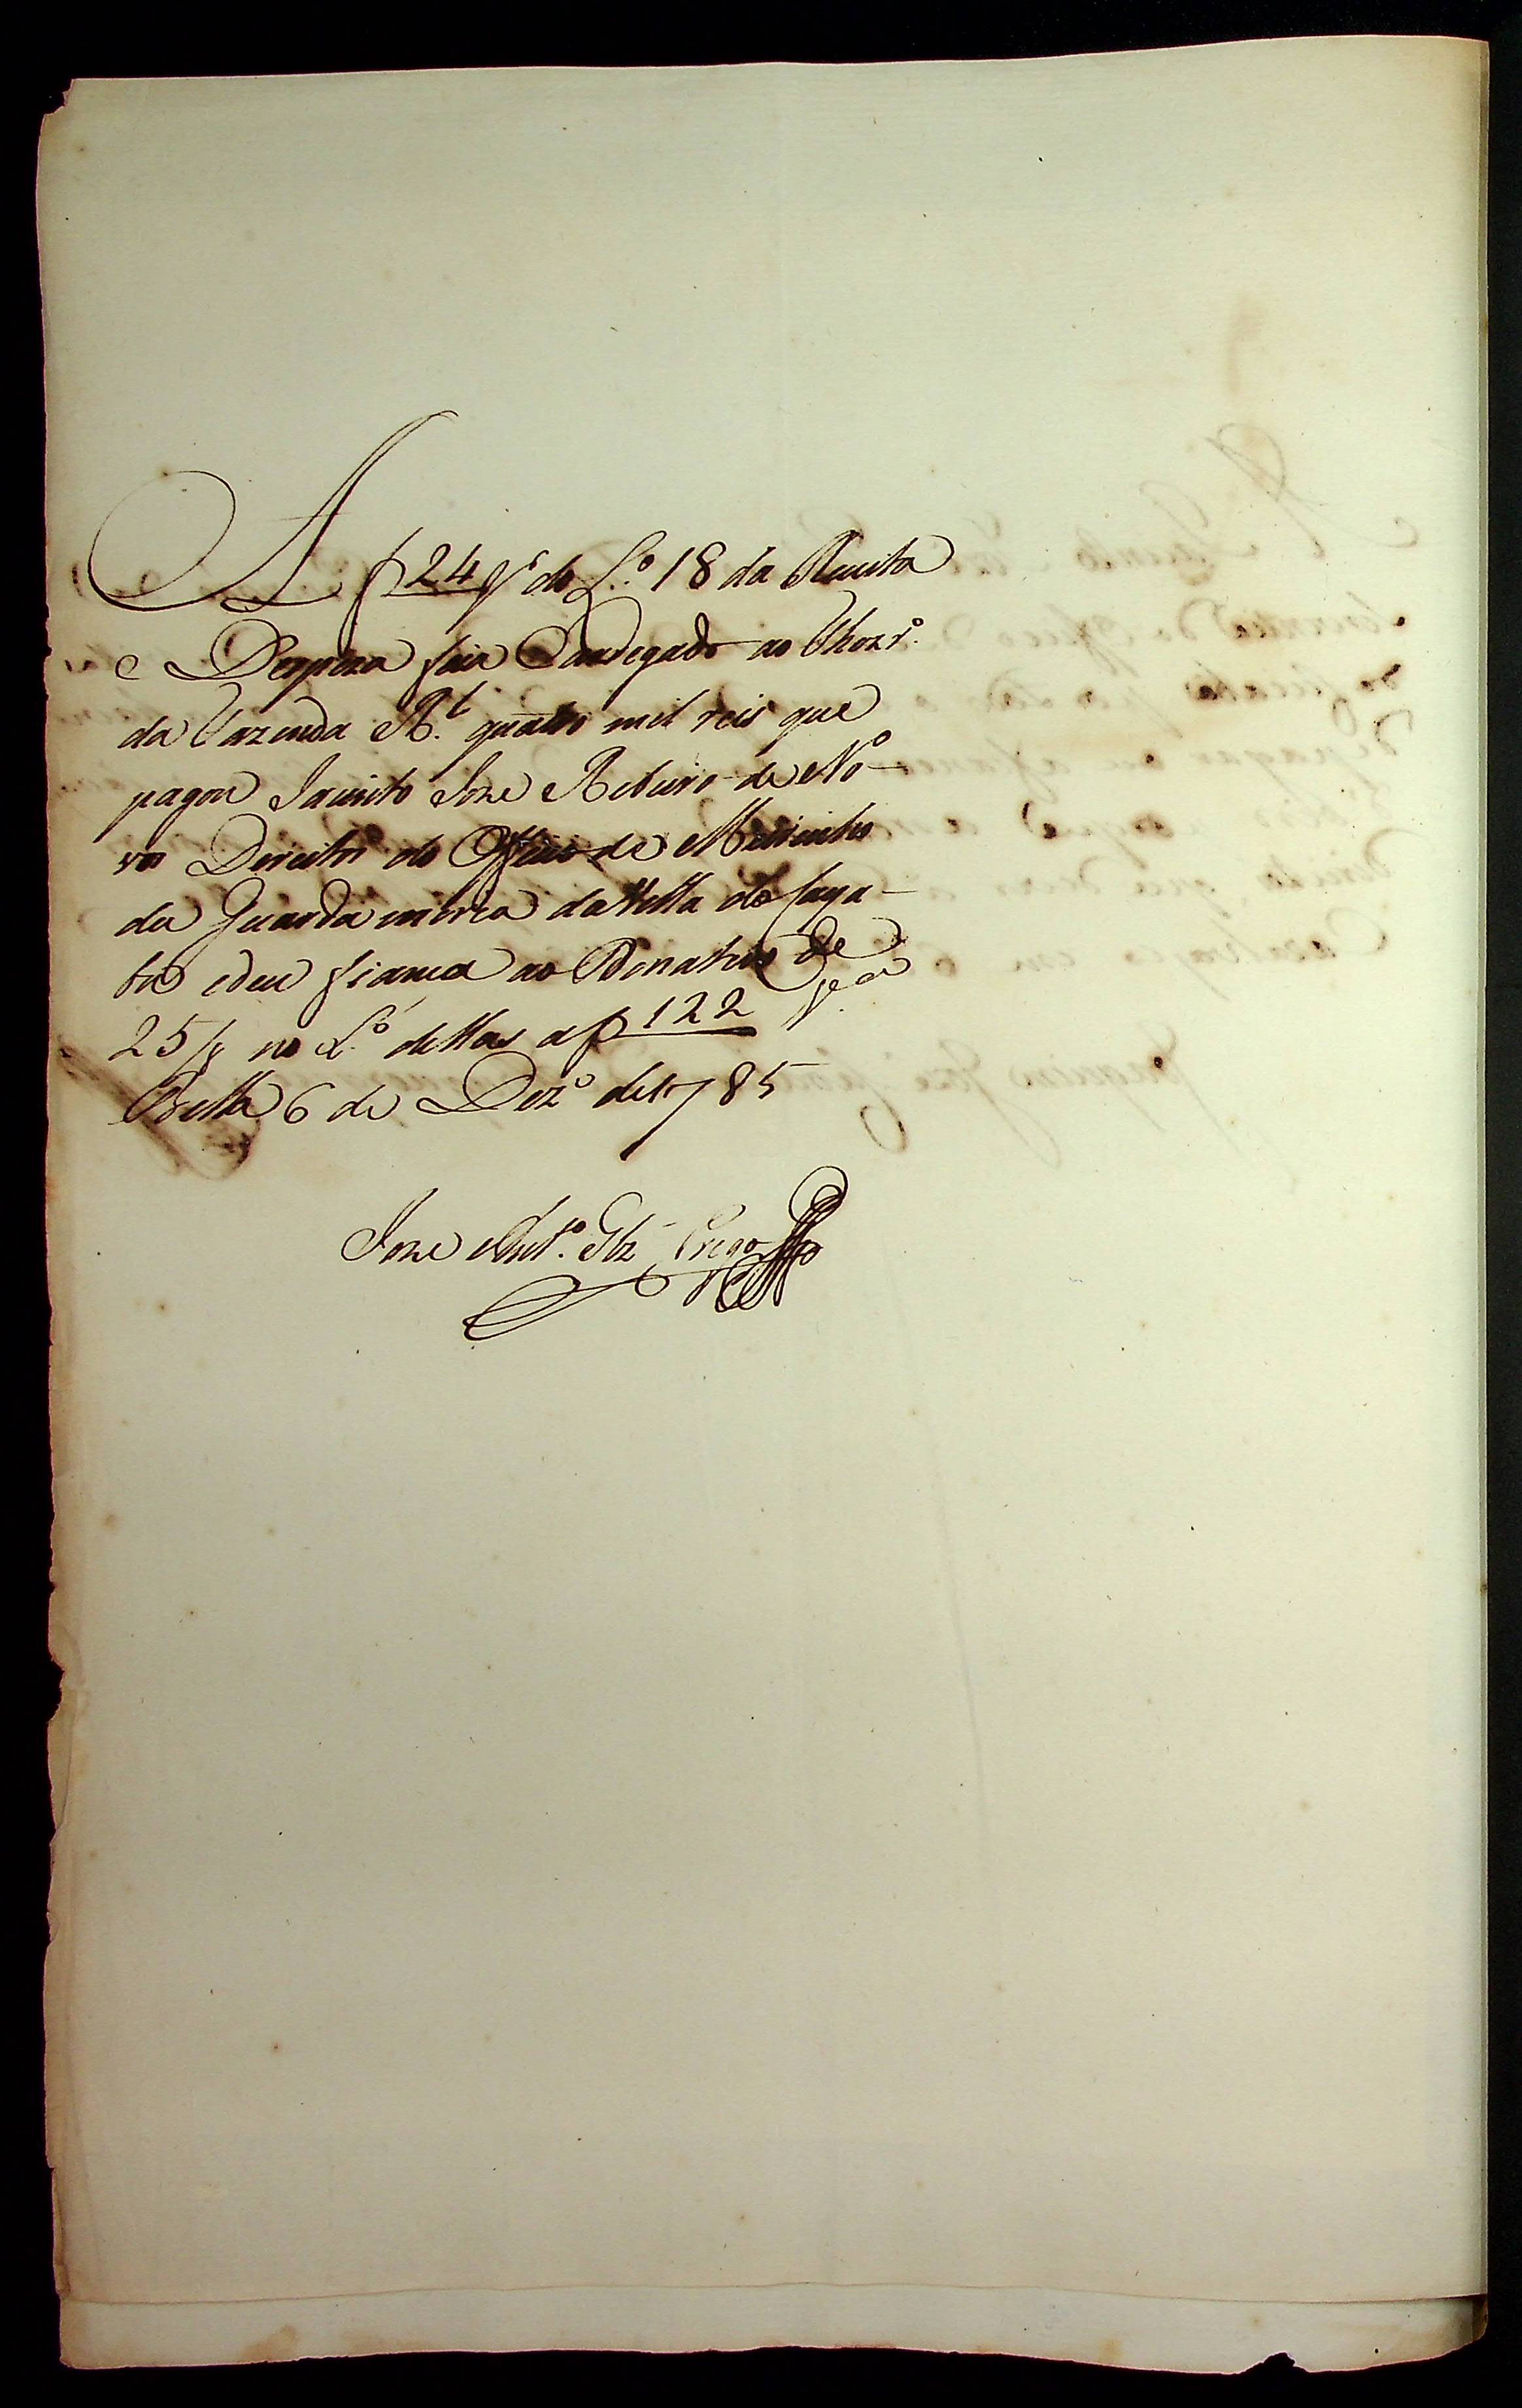 A f 24 vº do L.º 18 da Receita
e Despeza fica Carregado ao Thezrº.
da Fazenda R.l quatro mil reis que
pagou Jacinto Joze Ribeiro de No-
vos Direitos do Officio de Meirinho
da Guarda moria da Villa de
e deu fiança ao Donativo de
25/8 no L.º dellas a f 122 Vª
Bella 6 de Dezº de 1785
Joze Antº. Glz Prego